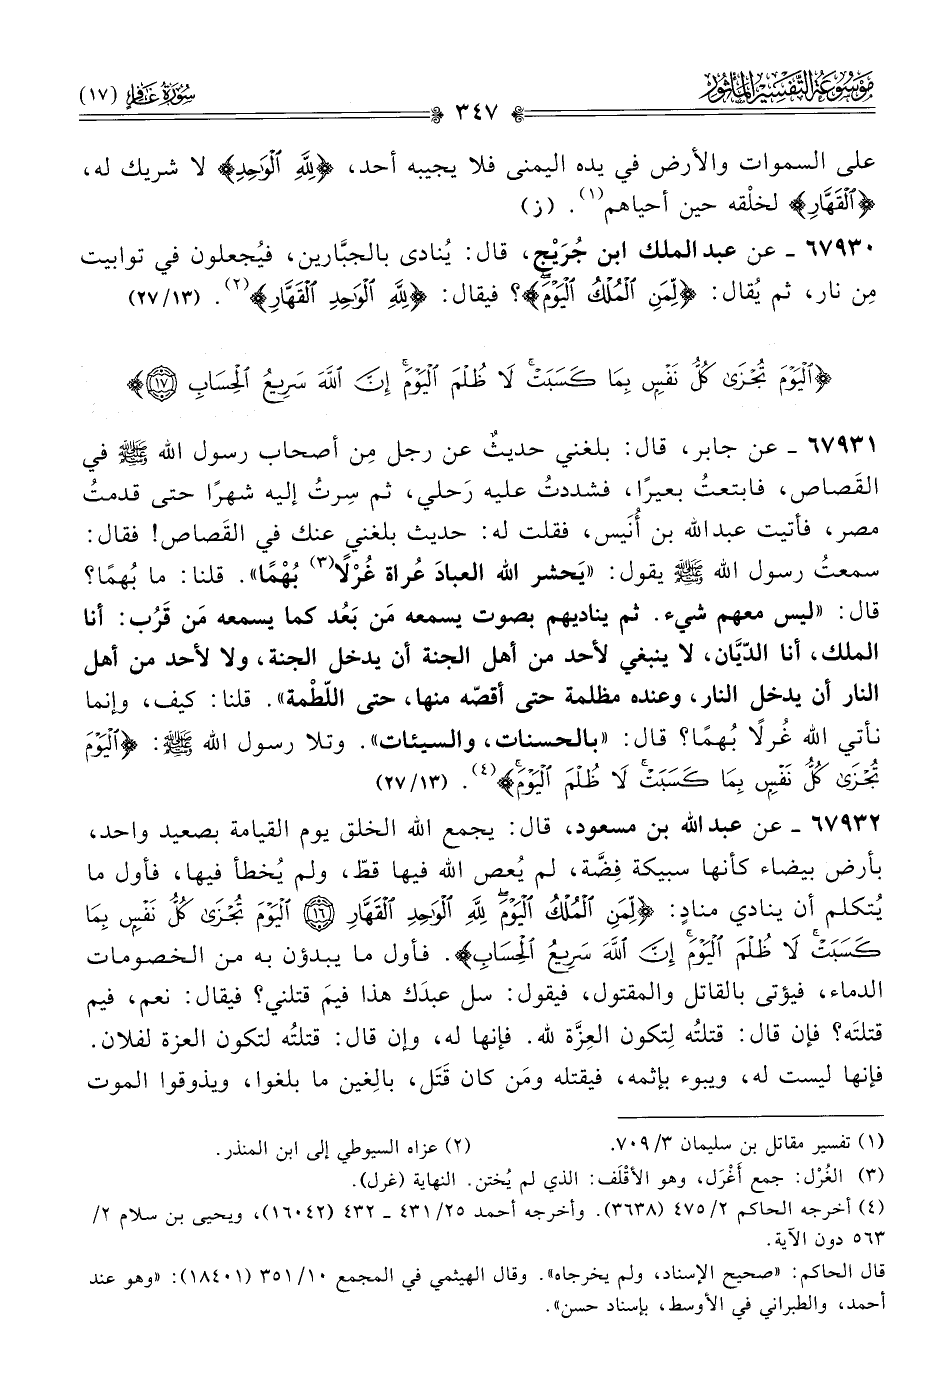 مَوْسُوعَةُ التَّفْسِيرِ المَأْثُور
٣٤٧
سُورَةُ غَافِرٍ (١٧)
على السموات والأرض في يده اليمنى فلا يجيبه أحد، ﴿لِلَّهِ ٱلْوَٰحِدِ﴾ لا شريك له،
﴿ٱلْقَهَّارِ﴾ لخلْقه حين أحياهم(١). (ز)
٦٧٩٣٠ ـ عن عبد الملك ابن جُرَيْج، قال: يُنادى بالجبَّارين، فيُجعلون في توابيت
مِن نار، ثم يُقال: ﴿لِّمَنِ ٱلْمُلْكُ ٱلْيَوْمَۖ﴾؟ فيقال: ﴿لِلَّهِ ٱلْوَٰحِدِ ٱلْقَهَّارِ﴾(٢). (٢٧/١٣)
﴿ٱلْيَوْمَ تُجْزَىٰ كُلُّ نَفْسٍۭ بِمَا كَسَبَتْۚ لَا ظُلْمَ ٱلْيَوْمَۚ إِنَّ ٱللَّهَ سَرِيعُ ٱلْحِسَابِ ١٧﴾
٦٧٩٣١ ـ عن جابر، قال: بلغني حديثٌ عن رجل مِن أصحاب رسول الله ﷺ في
القَصاص، فابتعتُ بعيرًا، فشددتُ عليه رَحلي، ثم سِرتُ إليه شهرًا حتى قدمتُ
مصر، فأتيت عبد الله بن أُنَيس، فقلت له: حديث بلغني عنك في القَصاص! فقال:
سمعتُ رسول الله ﷺ يقول: «يَحشر الله العبادَ عُراة غُرْلًا(٣) بُهْمًا». قلنا: ما بُهمًا؟
قال: «ليس معهم شيء. ثم يناديهم بصوت يسمعه مَن بَعُد كما يسمعه مَن قَرُب: أنا
الملك، أنا الدّيَّان، لا ينبغي لأحد من أهل الجنة أن يدخل الجنة، ولا لأحد من أهل
النار أن يدخل النار، وعنده مظلمة حتى أقصّه منها، حتى اللّطْمة». قلنا: كيف، وإنما
نأتي الله غُرلًا بُهمًا؟ قال: «بالحسنات، والسيئات». وتلا رسول الله ﷺ: ﴿ٱلْيَوْمَ
تُجْزَىٰ كُلُّ نَفْسٍۭ بِمَا كَسَبَتْۚ لَا ظُلْمَ ٱلْيَوْمَۚ﴾(٤). (٢٧/١٣)
٦٧٩٣٢ ـ عن عبد الله بن مسعود، قال: يجمع الله الخلق يوم القيامة بصعيد واحد،
بأرض بيضاء كأنها سبيكة فِضَّة، لم يُعص الله فيها قطّ، ولم يُخطأ فيها، فأول ما
يُتكلم أن ينادي منادٍ: ﴿لِّمَنِ ٱلْمُلْكُ ٱلْيَوْمَۖ لِلَّهِ ٱلْوَٰحِدِ ٱلْقَهَّارِ ١٦ ٱلْيَوْمَ تُجْزَىٰ كُلُّ نَفْسٍۭ بِمَا
كَسَبَتْۚ لَا ظُلْمَ ٱلْيَوْمَۚ إِنَّ ٱللَّهَ سَرِيعُ ٱلْحِسَابِ﴾. فأول ما يبدؤن به من الخصومات
الدماء، فيؤتى بالقاتل والمقتول، فيقول: سل عبدَك هذا فيمَ قتلني؟ فيقال: نعم، فيم
قتلتَه؟ فإن قال: قتلتُه لِتكون العِزَّة لله. فإنها له، وإن قال: قتلتُه لتكون العزة لفلان.
فإنها ليست له، ويبوء بإثمه، فيقتله ومَن كان قَتَل، بالِغين ما بلغوا، ويذوقوا الموت
(١) تفسير مقاتل بن سليمان ٣/ ٧٠٩. (٢) عزاه السيوطي إلى ابن المنذر.
(٣) الغُرْل: جمع أَغْرَل، وهو الأقْلَف: الذي لم يُختن. النهاية (غرل).
(٤) أخرجه الحاكم ٢/ ٤٧٥ (٣٦٣٨). وأخرجه أحمد ٢٥/ ٤٣١ ـ ٤٣٢ (١٦٠٤٢)، ويحيى بن سلام ٢/
٥٦٣ دون الآية.
قال الحاكم: «صحيح الإسناد، ولم يخرجاه». وقال الهيثمي في المجمع ١٠/ ٣٥١ (١٨٤٠١): «وهو عند
أحمد، والطبراني في الأوسط، بإسناد حسن».